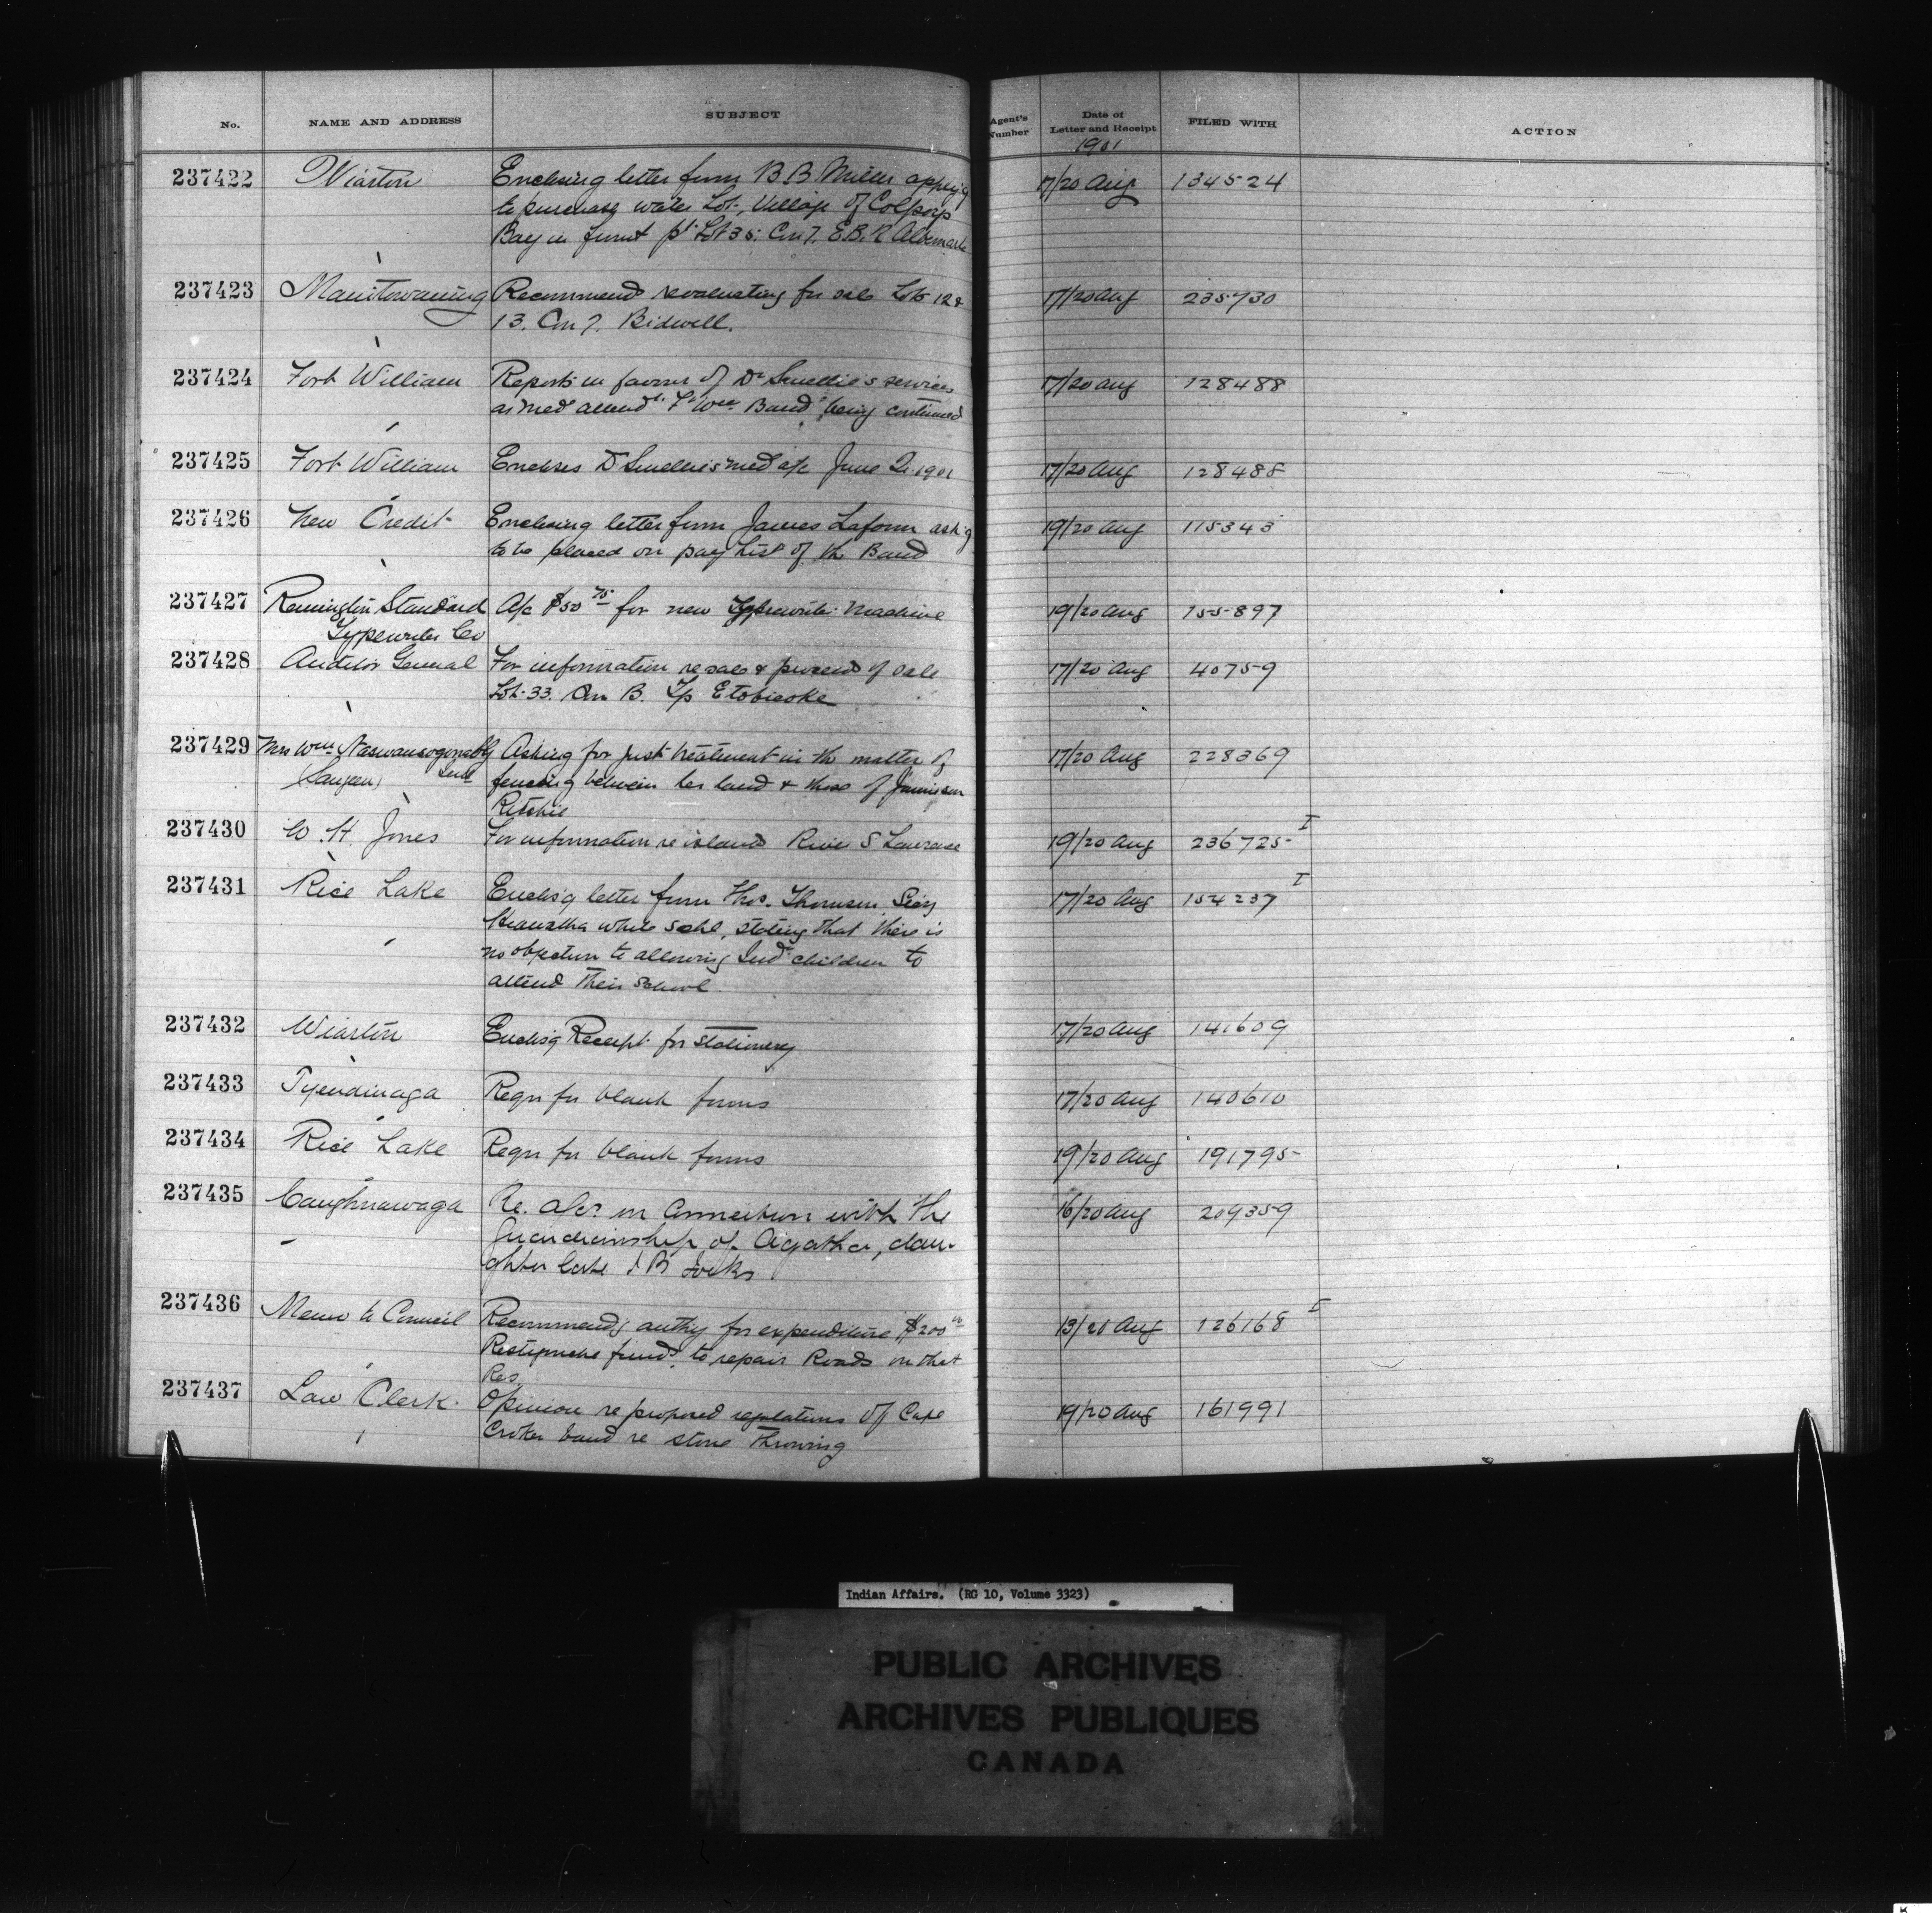 No. NAME AND ADDRESS SUBJECT Agent's Number Date of Letter and Receipt FILED WITH ACTION
1901
237422 Wiarton Enclosing letter from B B Miller apply'g 17/20 Aug 134524
to purchase water Lot, Village of Colpoys
Bay in front pt Lot 35. Con 7. E.B.R Albemarle
237423 Manitowaning Recommends revaluating for sale Lots 12 & 17/20 Aug 235730
13. Con 7. Bidwell.
237424 Fort William Reports in favour of Dr Smellie's services 17/20 Aug 128488
as med attendt. Ft Wm Band being continued
237425 Fort William Encloses Dr Smellie's med a/c June Qr 1901 17/20 Aug 128488
237426 New Credit Enclosing letter from James Laform ask'g 19/20 Aug 115343
to be placed on pay list of the Band
237427 Remington Standard A/c $50 75 for new Typewriter Machine 19/20 Aug 155897
Typewriter Co
237428 Auditor General For information re sale & proceeds of sale 17/20 Aug 40759
Lot 33. Con B. Tp Etobicoke
237429 Mrs Wm Asking for just treatment in the matter of 17/20 Aug 228369
(Saugeen) fencing between her land & those of Jamieson
Ritchie
237430 W. H. Jones For information re island River St Lawrence 19/20 Aug 236725 I
237431 Rice Lake Enclos'g letter from Thos. Thomson Secy 17/20 Aug 154237 I
Hiawatha white Schl, stating that there is
no objection to allowing Ind children to
attend their school.
237432 Wiarton Enclos'g Receipt for stationery 17/20 Aug 141609
237433 Tyendinaga Reqn for blank forms 17/20 Aug 140610
237434 Rice Lake Reqn for blank forms 19/20 Aug 191795
237435 Caughnawaga Re. a/cs in connection with the 16/20 Aug 209359
Guardianship of Agatha, dau-
ghter late J B Jocks
237436 Memo to Council Recommends authy for expenditure $200 00 13/20 Aug 126168 I
Restigouche funds to repair Roads on that
Res.
237437 Law Clerk Opinion re proposed regulations of Cape 19/20 Aug 161991
Croker band re stone throwing
Indian Affairs. (RG 10, Volume 3323)
PUBLIC ARCHIVES
ARCHIVES PUBLIQUES
CANADA